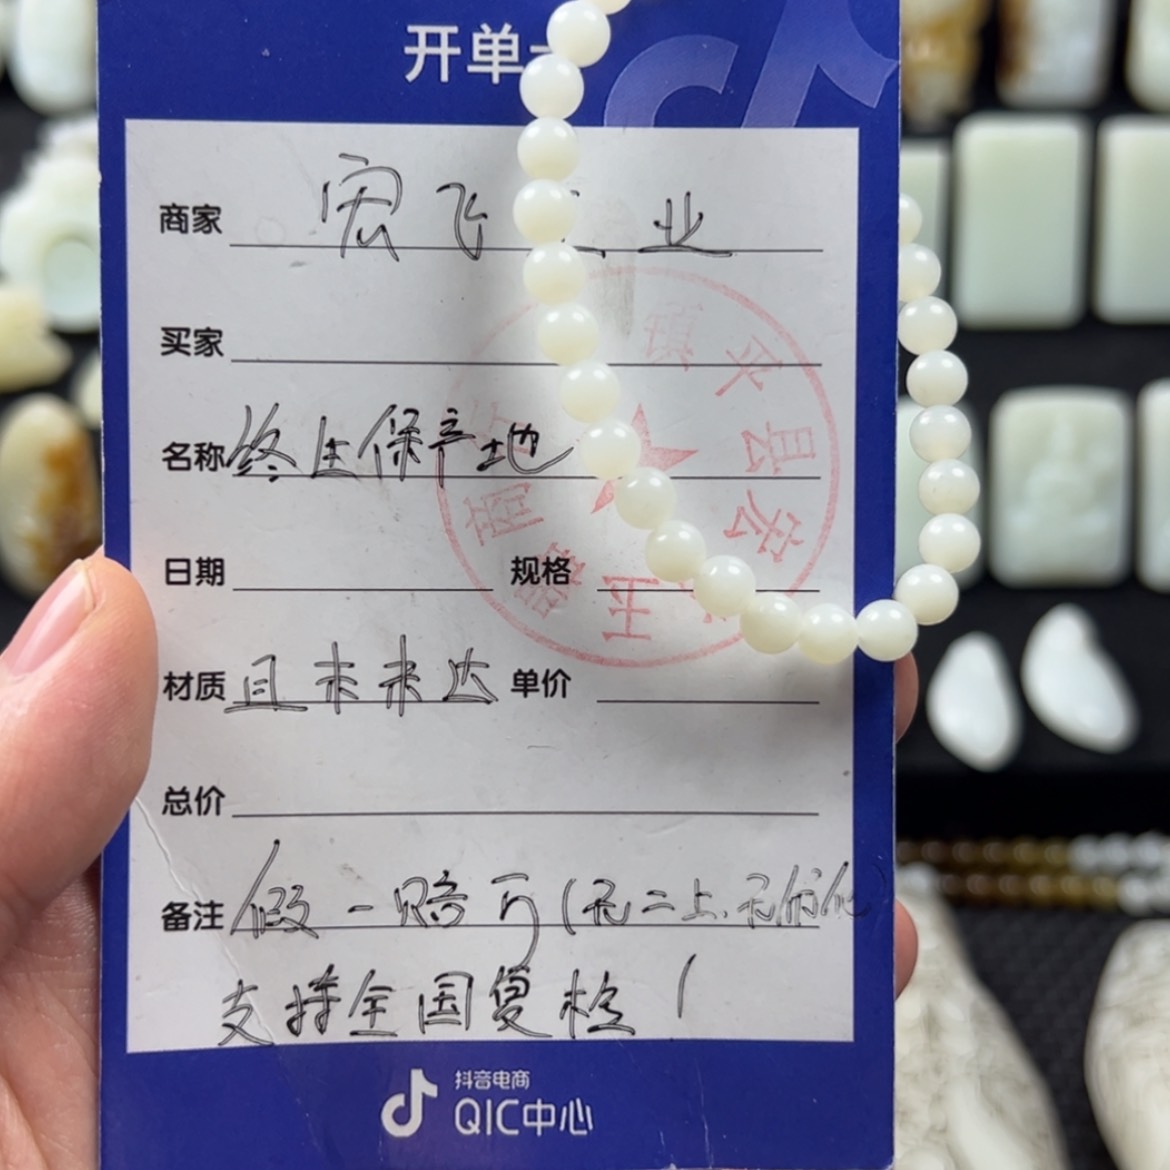 开单
商家 宏飞 业
买家
名称 终生保产地
日期 规格
材质 且末未达 单价
总价
备注 假一赔万(无二上.无优化)
支持全国复检!
镇平县宏 玉器商
抖音电商
QIC中心